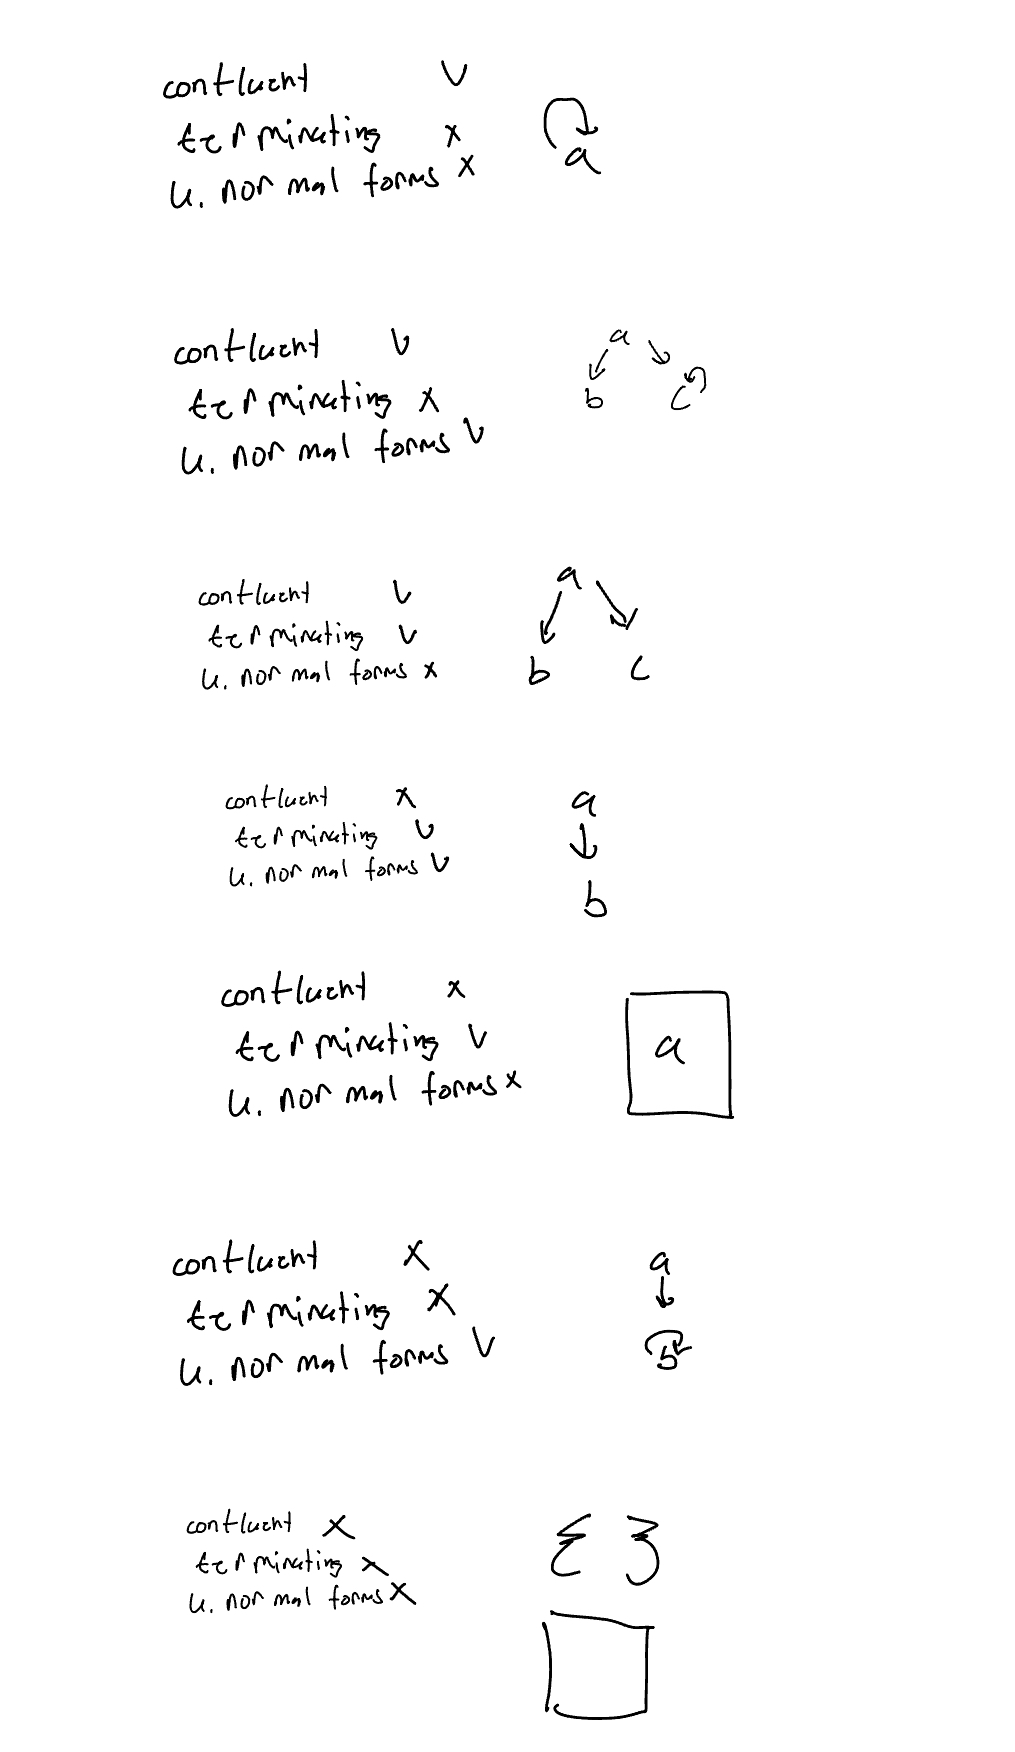 confluent V
terminating x a
u. normal forms x
confluent V a
terminating x b c
u. normal forms V
confluent V a
terminating V
u. normal forms x b c
confluent x a
terminating V
u. normal forms V b
confluent x
terminating V a
u. normal forms x
confluent x a
terminating x
u. normal forms V b
confluent x { }
terminating x
u. normal forms x